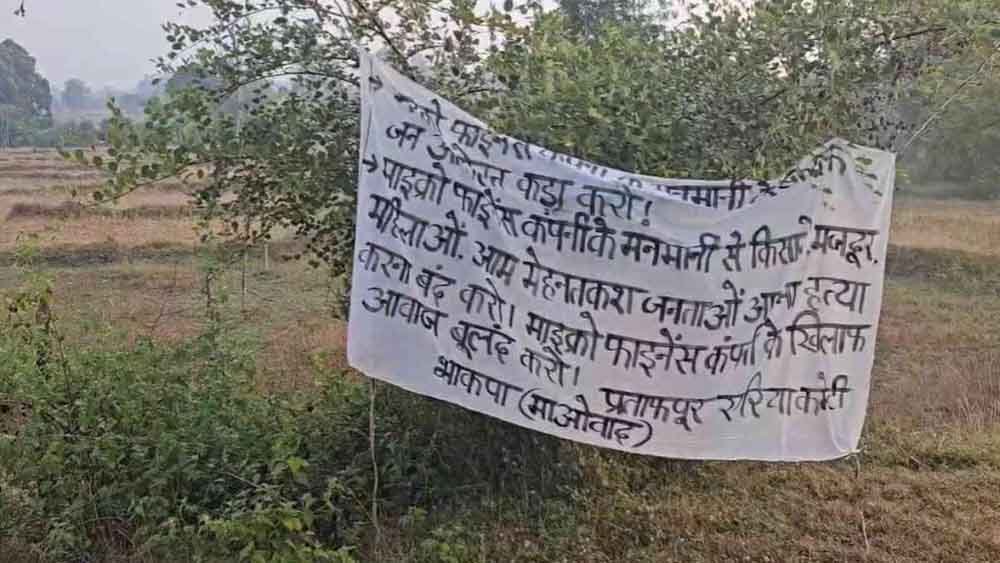 फाइनेंस मनमानी के
जन आंदोलन कड़ा करो!
→ माइक्रो फाइनेंस कंपनी के मनमानी से किसान, मजदूर,
महिलाओं, आम मेहनतकश जनताओं आत्म हत्या
करना बंद करो। माइक्रो फाइनेंस कंपनी के खिलाफ
आवाज बूलंद करो।
भाकपा (माओवाद) प्रतापपुर एरिया कमेटी